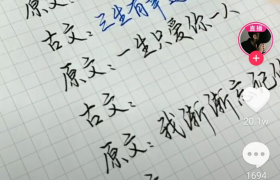 原文：
古文：三生有幸
原文：一生只爱你一人
古文：
原文：我渐渐忘记
直播
20.1w
1694